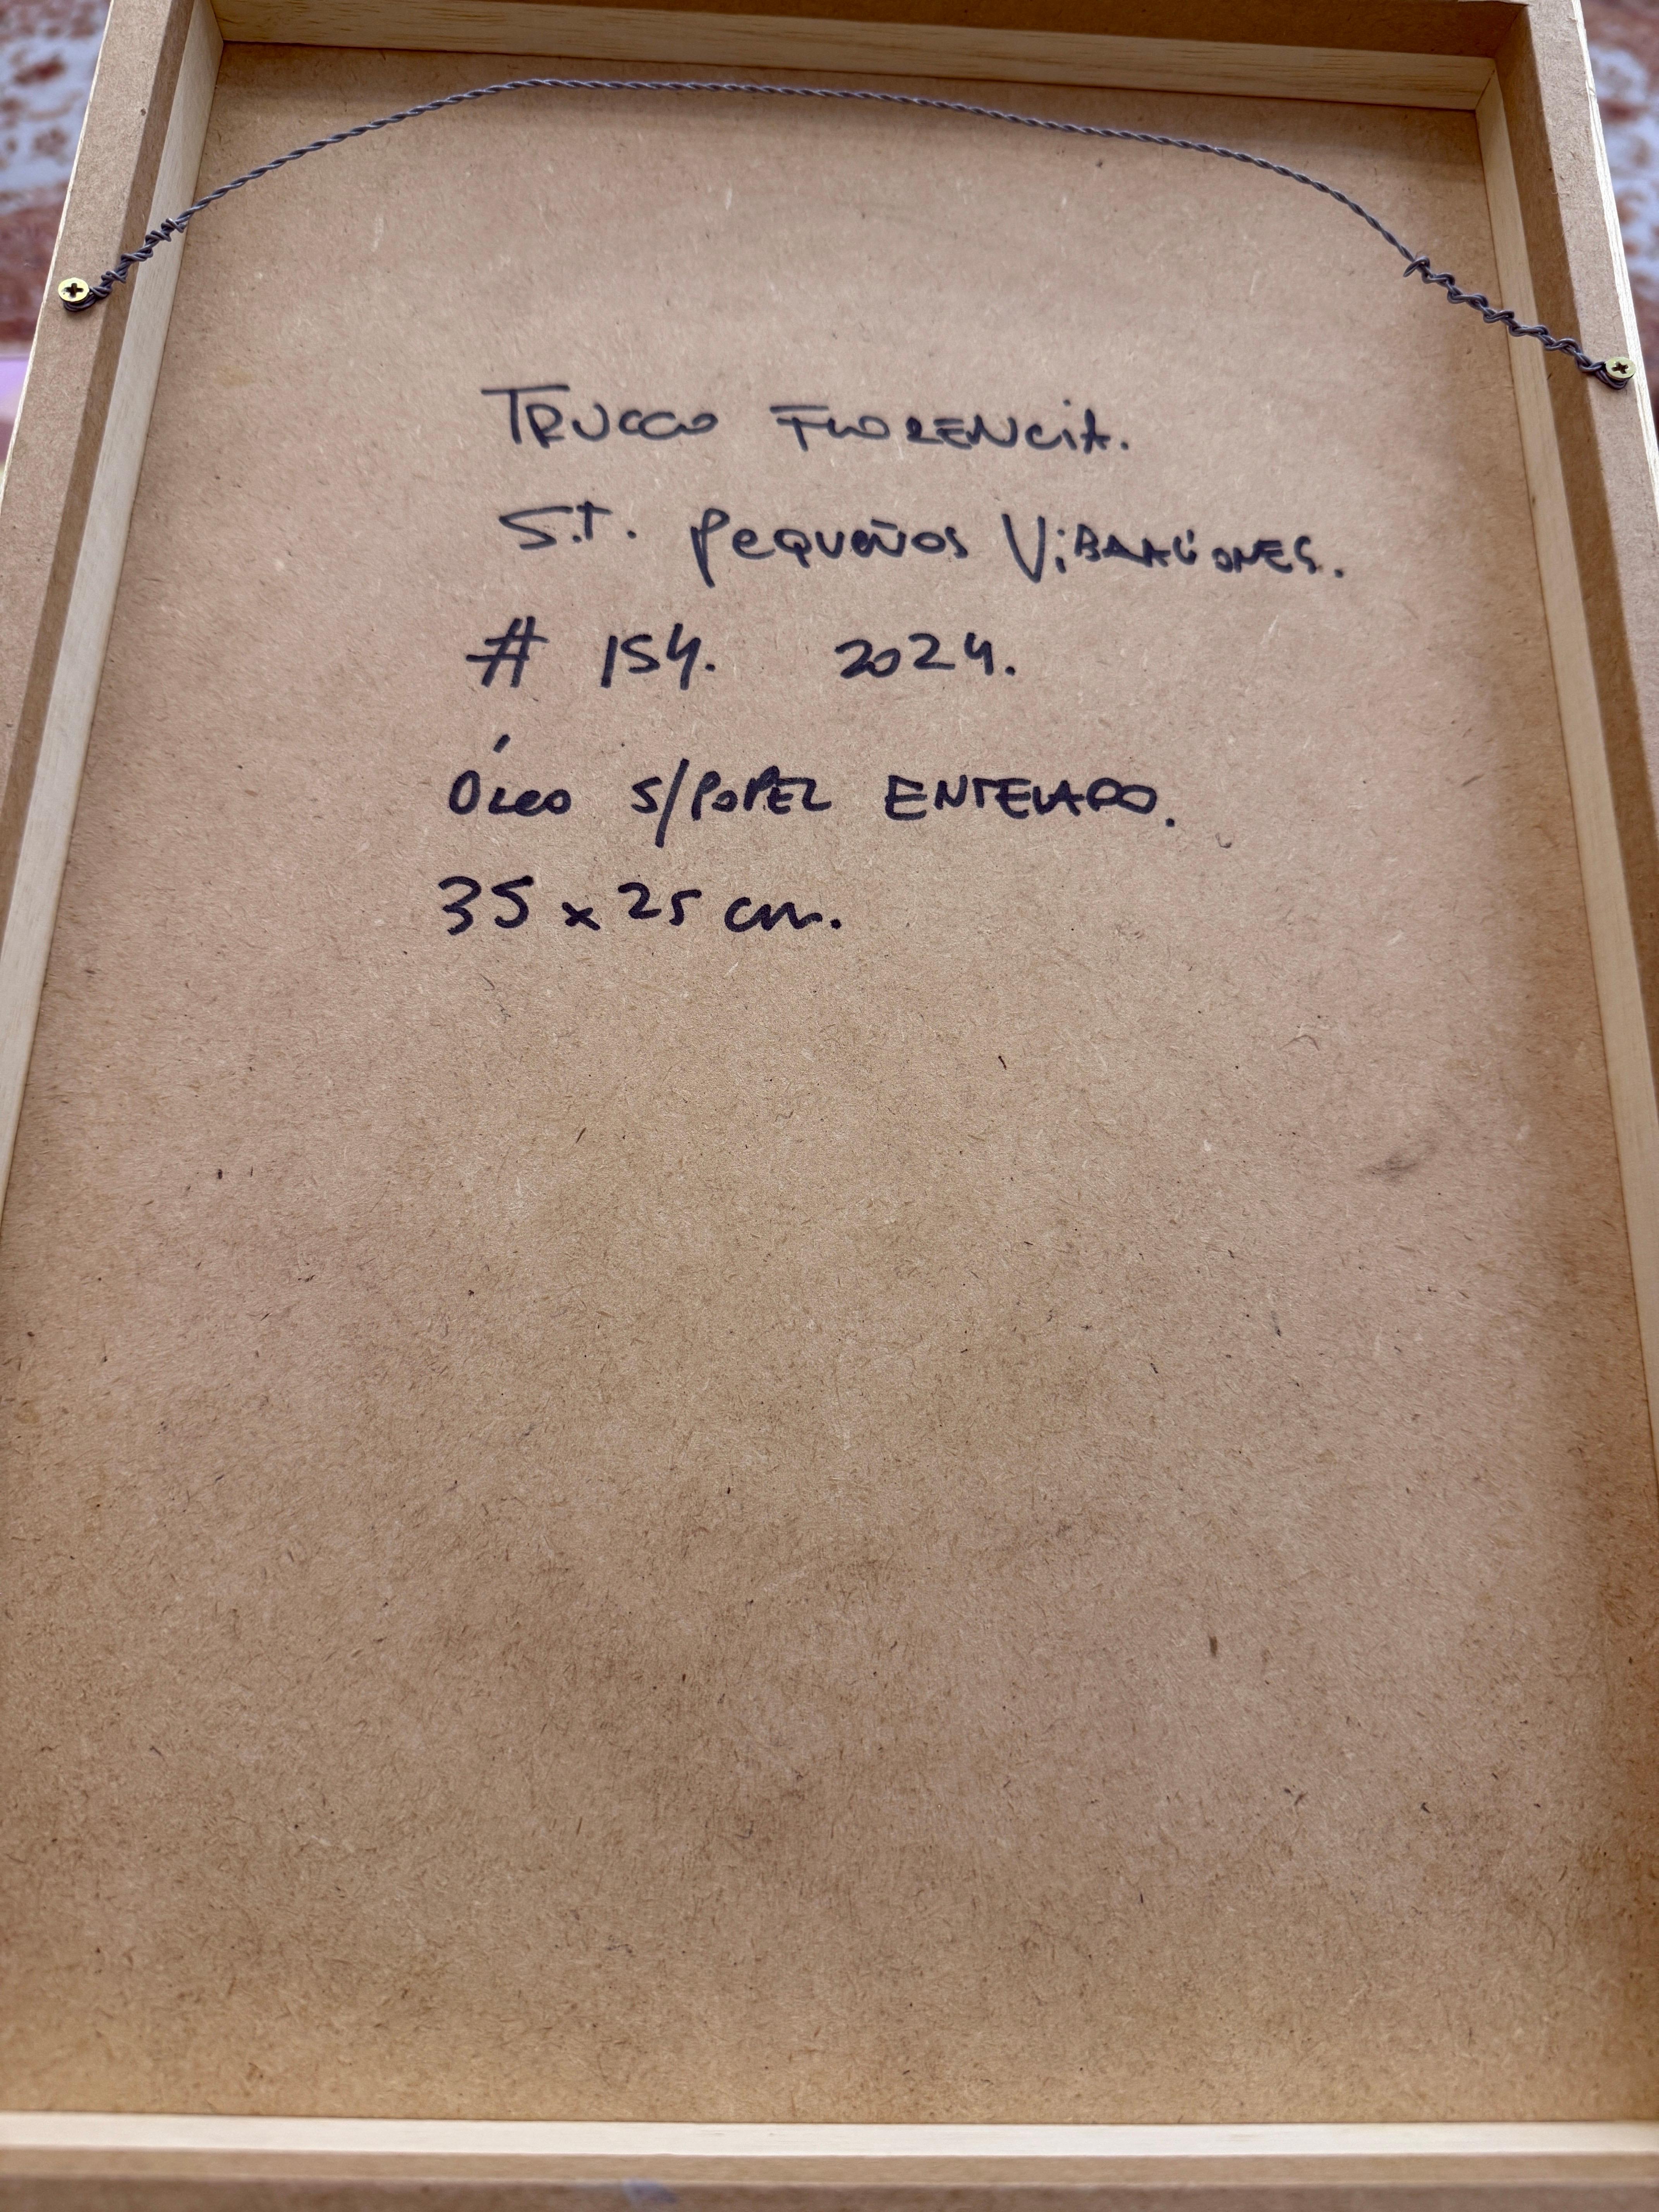 TRUCCO FLORENCIA.
S.T. PEQUEÑOS VIBRACIONES.
# 154. 2024.
ÓLEO S/PAPEL ENTELADO.
35 x 25 cm.